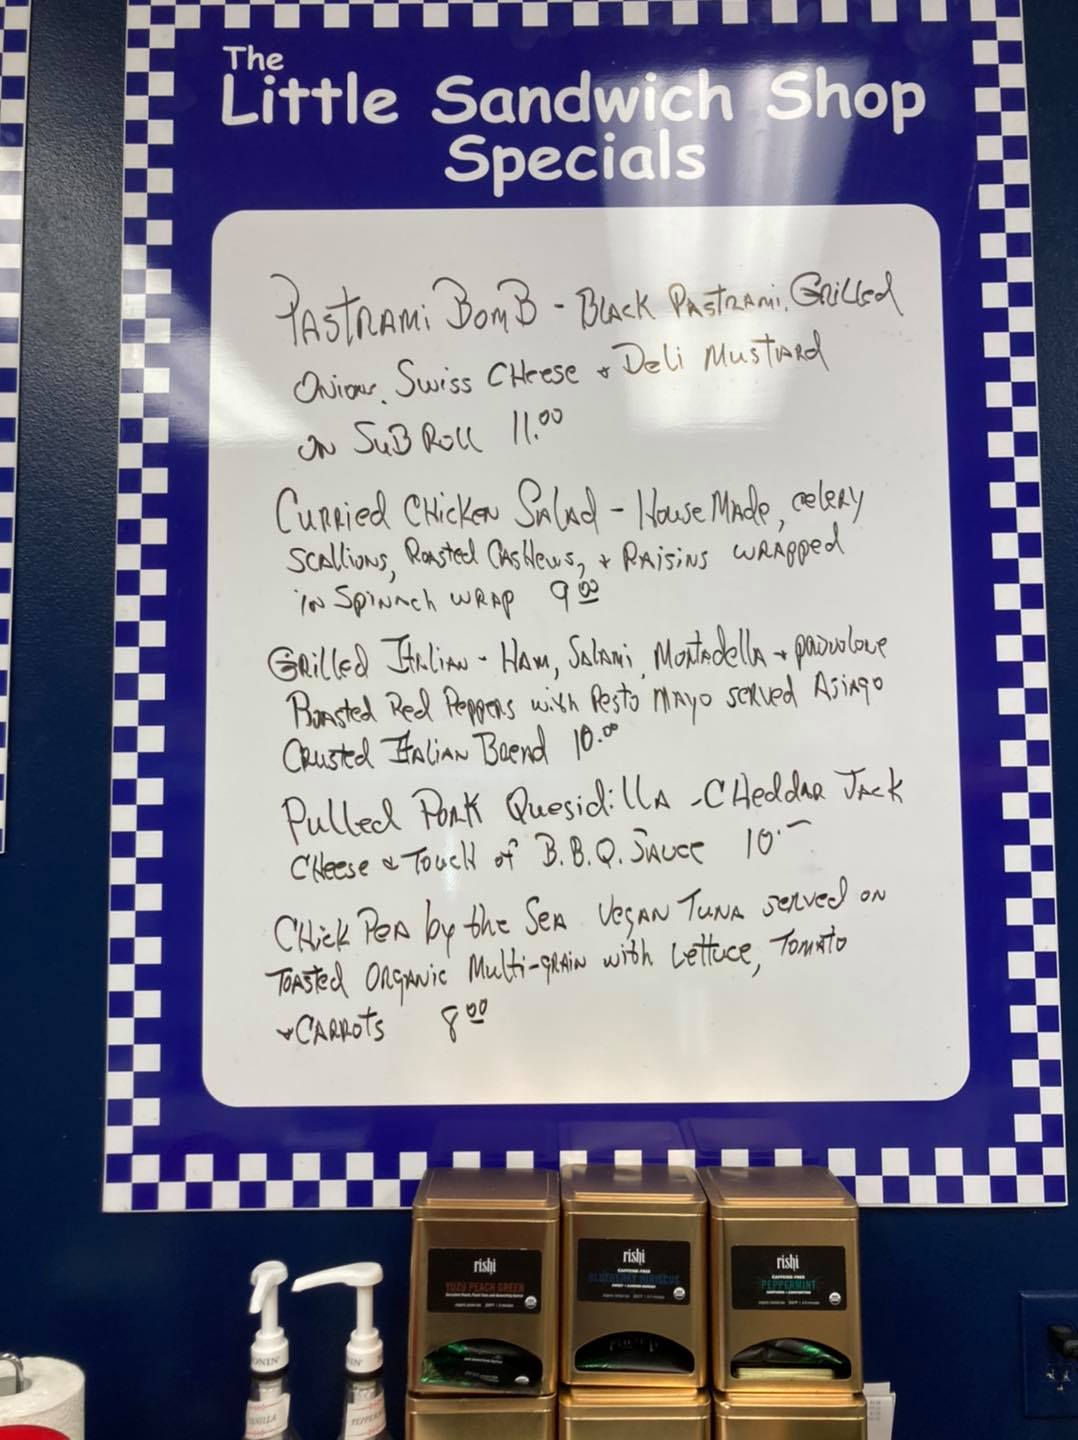 The
Little Sandwich Shop
Specials
Pastrami Bomb - Black Pastrami, Grilled
Onions, Swiss Cheese + Deli Mustard
on Sub Roll 11.00
Curried Chicken Salad - House Made, celery
scallions, Roasted Cashews, + Raisins wrapped
in Spinach wrap 9 00
Grilled Italian - Ham, Salami, Mortadella + provolone
Roasted Red Peppers with Pesto Mayo served Asiago
Crusted Italian Baend 10.00
Pulled Pork Quesidilla - Cheddar Jack
Cheese & Touch of B.B.Q. Sauce 10.–
Chick Pea by the Sea Vegan Tuna served on
Toasted Organic Multi-grain with Lettuce, Tomato
+ Carrots 8 00
rishi
YUZU PEACH GREEN
rishi
CAFFEINE-FREE
BLUEBERRY HIBISCUS
rishi
CAFFEINE-FREE
PEPPERMINT
ONIN
VANILLA
IN
PEPPER